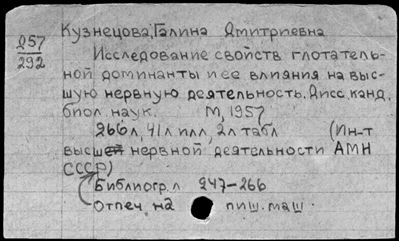 Кузнецова, Галина Дмитриевна
257
292
Исследование свойств глотатель-
ной доминанты и ее влияния на выс-
шую нервную деятельность. Дисс. канд.
биол. наук. М, 1957
266 л, 41 л илл, 2 л табл (Ин-т
высшей нервной деятельности АМН
СССР)
Библиогр. л 247-266
Отпеч. на пиш. маш.